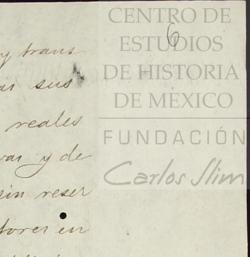 CENTRO DE
ESTUDIOS
6
DE HISTORIA
DE MÉXICO
FUNDACIÓN
Carlos Slim
y trans
sus
reales
var y de
sin reser
tores en